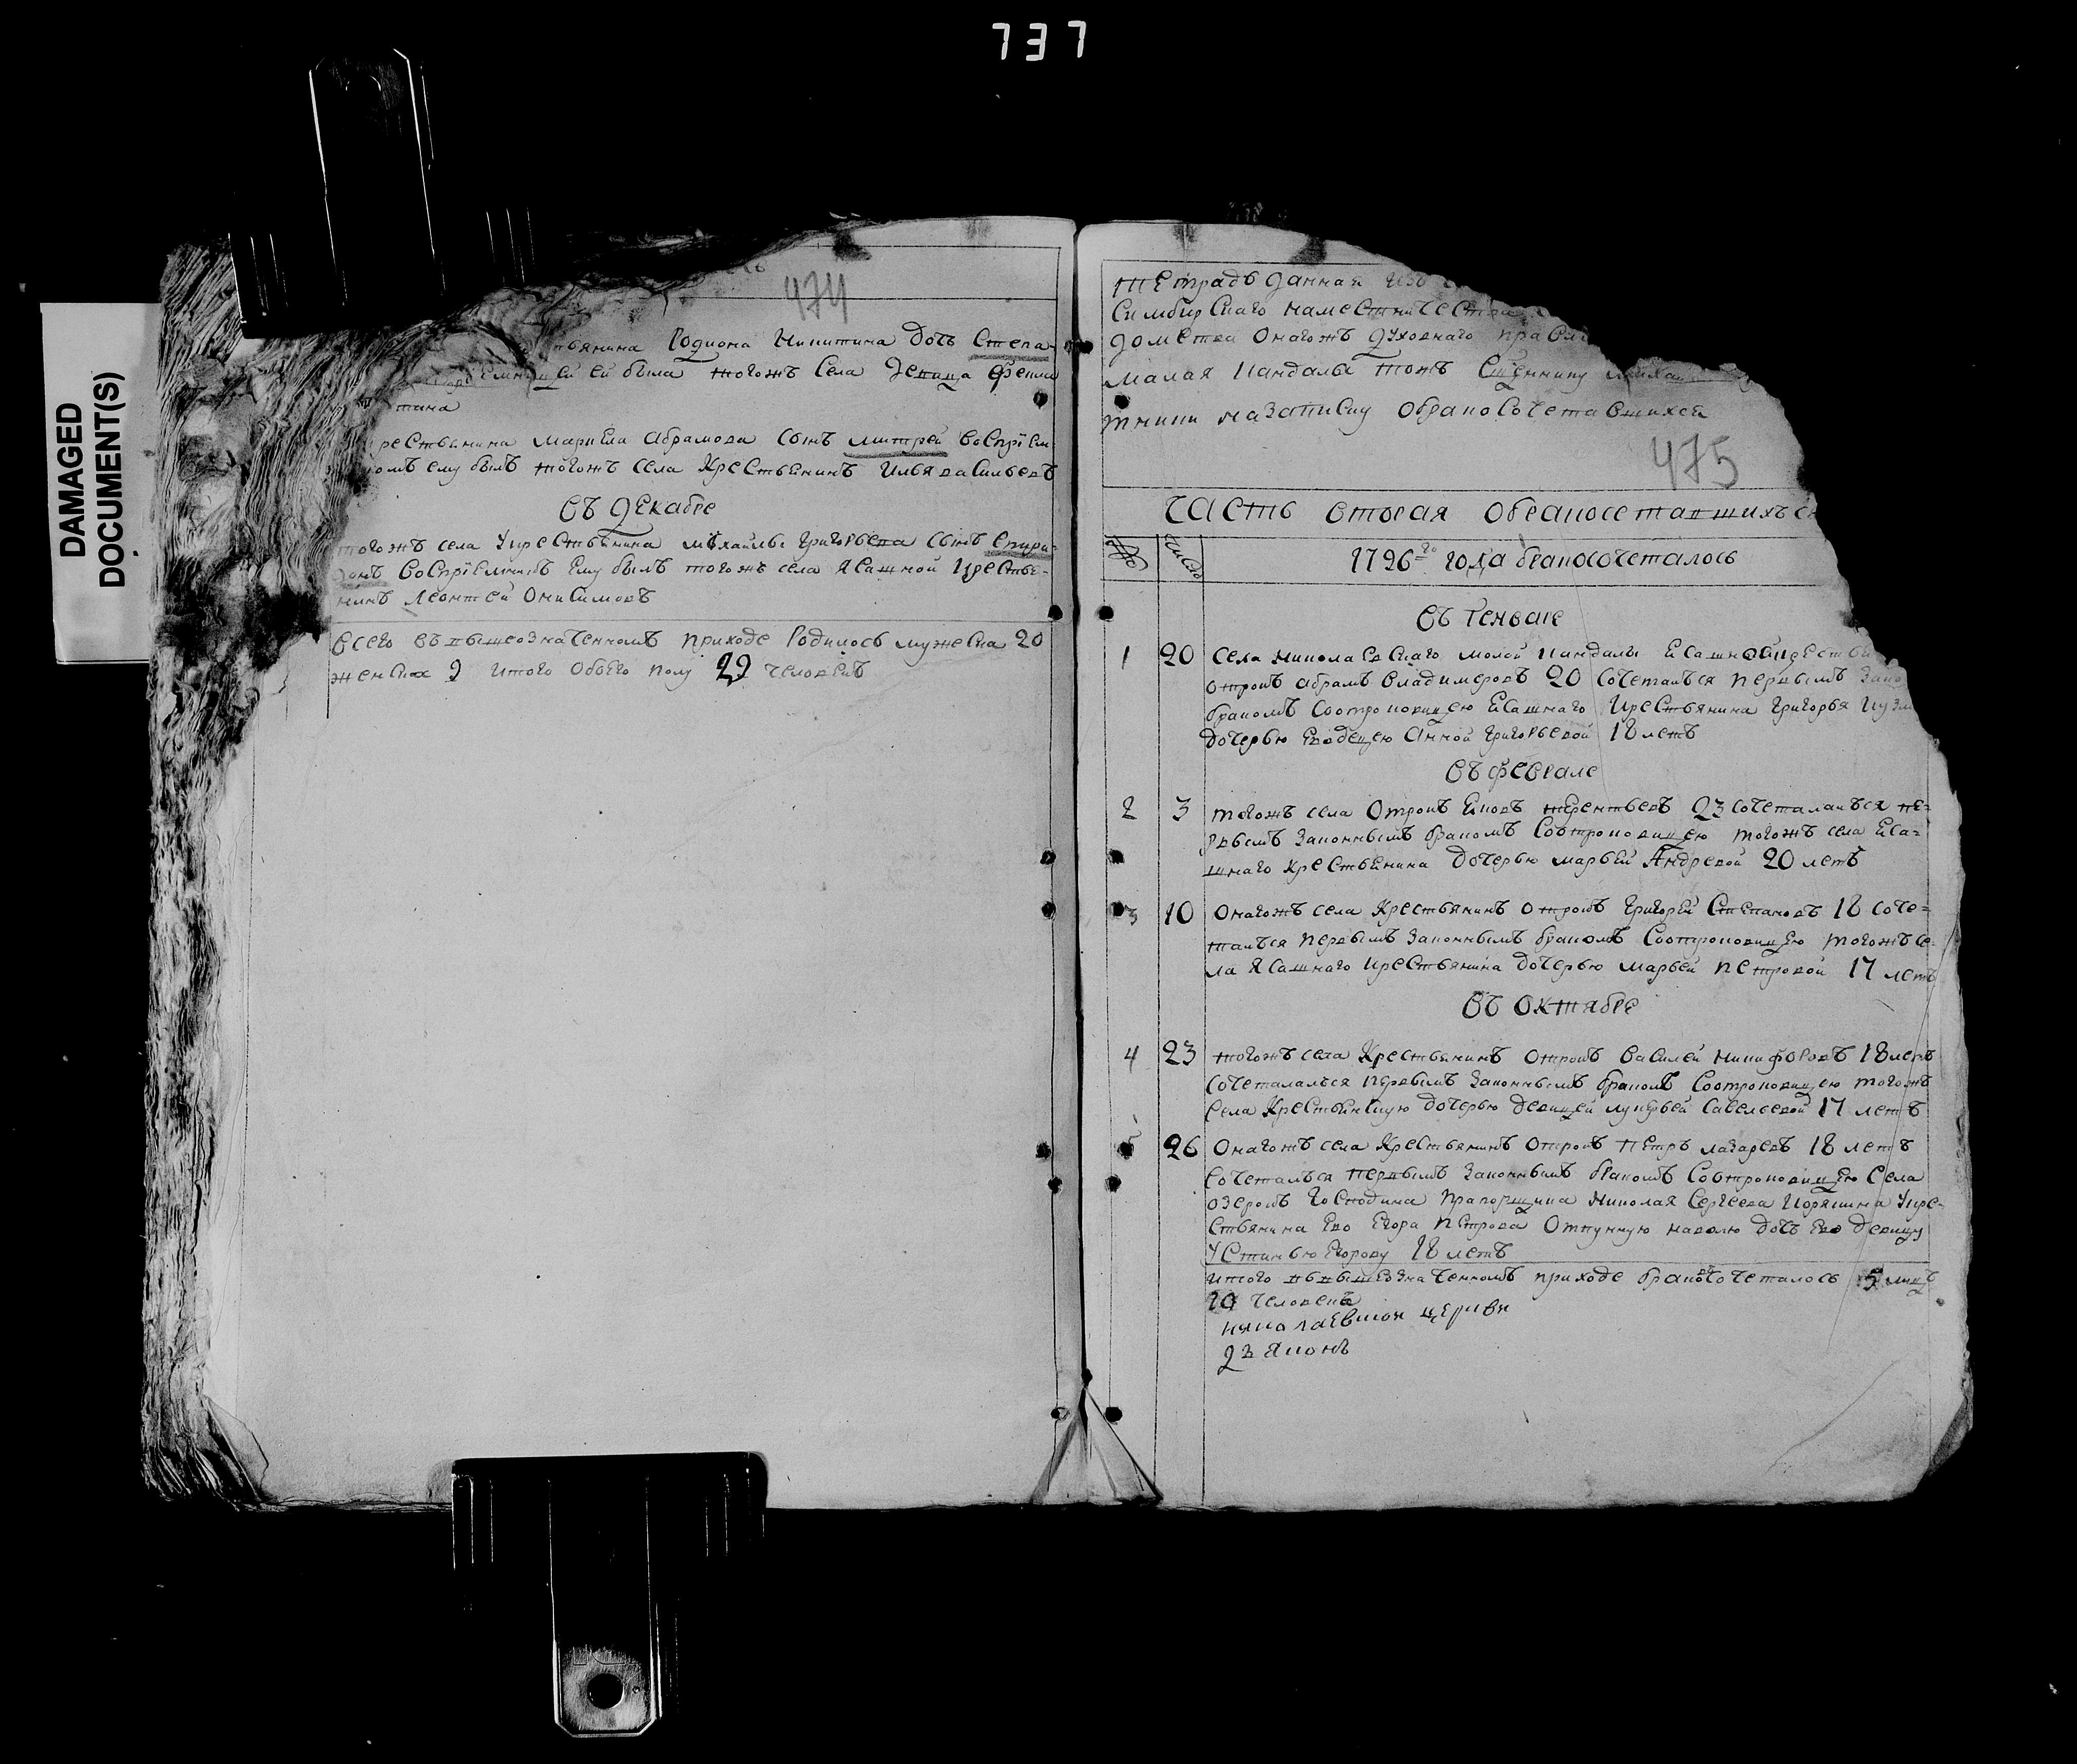 737
DAMAGED
DOCUMENT(S)
474
Родиона Никитина дочь Степа-
ей была тогожъ села девица
тина
рестьянина Маркела Абрамова сынъ Митрей воспрїем
омъ ему былъ тогожъ села крестьянинъ Илья Васильевъ
въ декабре
тогожъ села у крестьянина михайлы григорьева сынъ Спири-
донъ воспрїемникъ ему былъ тогожъ села ясашной крестья-
нинъ леонтей Онисимовъ
всего въ вышеозначенномъ приходе родилось мужеска 20
женска 9 итого обоего полу 29 человекъ
тетрадь данная изъ
Симбирскаго наместничества
домства онагожъ духовнаго правле
малая кандалы тожъ
на записку обракосочетавшихся
475
часть вторая обракосетавшихся
число
1796го года бракосочеталось
въ генваре
1 20 села николаевскаго малой кандалы есашной крестьян
отрокъ абрамъ владимеровъ 20 сочетался первымъ зако
бракомъ соотроковицею есашнаго крестьянина григорья кузм
дочерью анной григорьевой 18 летъ
въ феврале
2 3 тогожъ села отрокъ терентьевъ 23 сочеталался пе-
рвымъ законнымъ бракомъ соотроковицею тогожъ села еса-
шнаго крестьянина дочерью марьей Андревой 20 летъ
3 10 онагожъ села крестьянинъ отрокъ григорей степановъ 18 соче-
тался первымъ законнымъ бракомъ соотроковицею тогожъ се-
ла ясашнаго крестьянина дочерью марьей петровой 17 летъ
въ октябре
4 23 тогожъ села крестьянинъ отрокъ василей никифоровъ 18 летъ
сочеталался первымъ законнымъ бракомъ соотроковицею тогожъ
села крестьянскую дочерью девицей лукерьей савельевой 17 летъ
5 26 онагожъ села крестьянинъ отрокъ петръ лазаревъ 18 летъ
сочетался первымъ законнымъ бракомъ соотроковицею села
озерокъ господина прапорщика николая сергеева у кре-
стьянина ево егора петрова отпускную на волю дочь ево девицу
устинью егорову 18 летъ
итого въ вышеозначенномъ приходе бракосочеталось 5
10 человекъ
николаевской церкви
дьяконъ